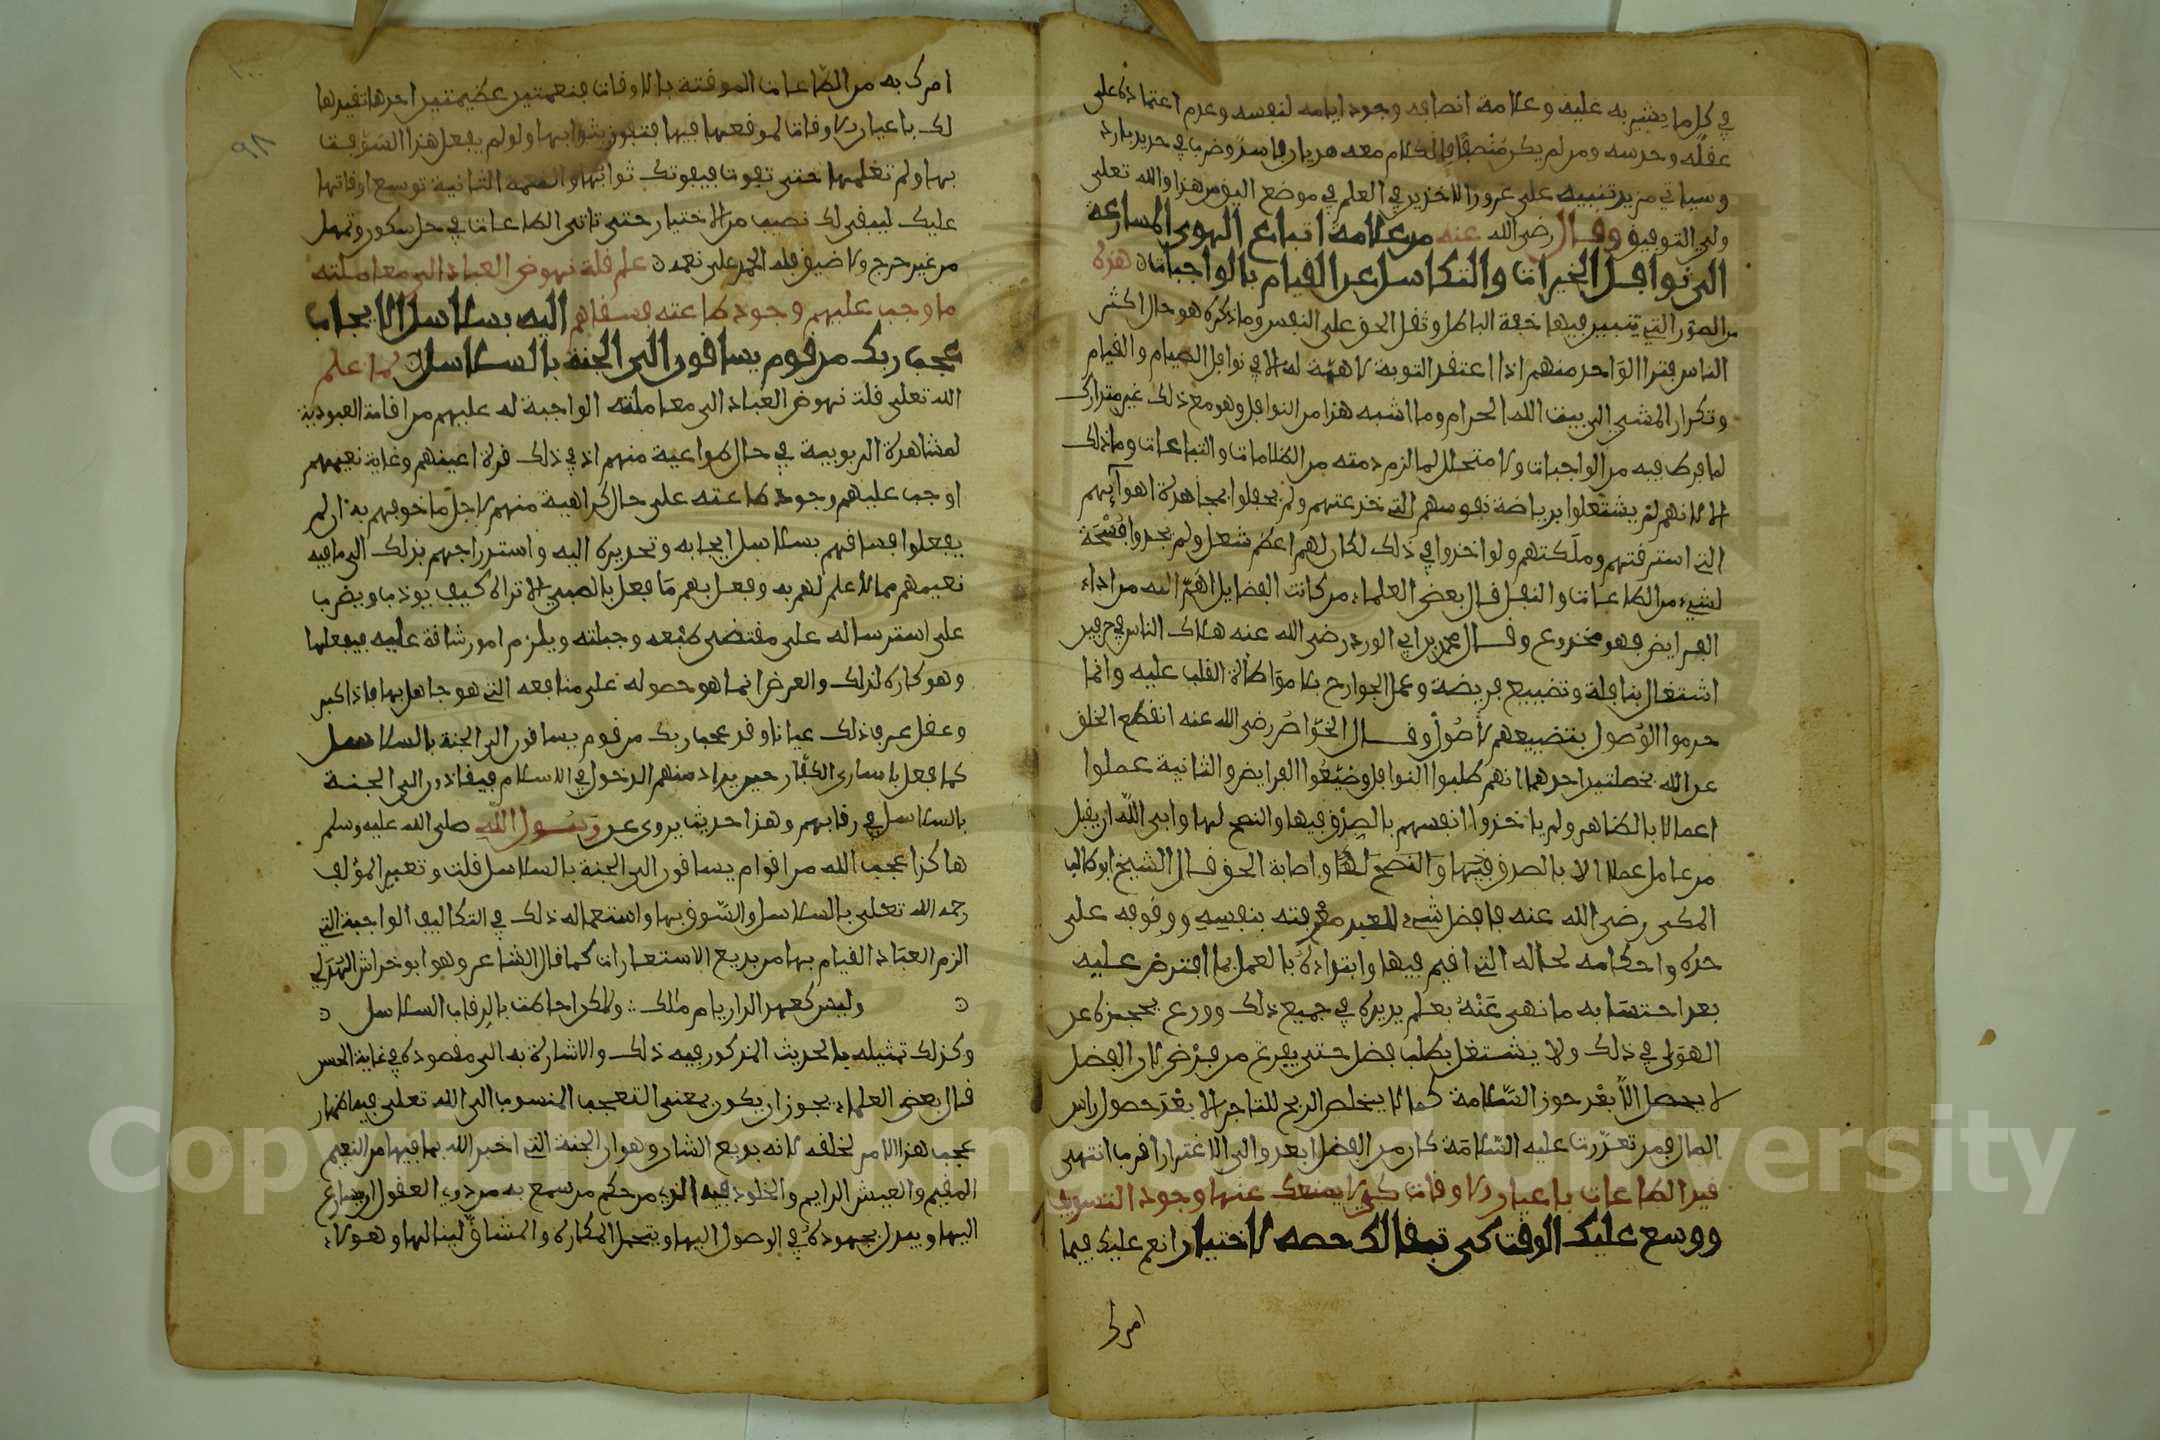 في كل ما يشير به عليه وعلامة انصافه وجود ايامه لنفسه وعدم اعتماده على
عقله وحدسه ومن لم يكن منصفا فالكلام معه هذيان فاسد وضرب في حديد بارد
وسياتي مزيد تنبيه على غرور الاخذين في العلم في موضع اليق من هذا والله تعلى
ولي التوفيق وقال رضي الله عنه من علامة اتباع الهوى المسارعة
الى نوافل الخيرات والتكاسل عن القيام بالواجبات هذه
من الصور التي يتبين فيها خفة الباطل وثقل الحق على النفس وما ذكره هو حال اكثر
الناس فترا الواحد منهم اذا اعتقد التوبة لا همة له الا في نوافل الصيام والقيام
وتكرار المشي الى بيت الله الحرام وما اشبه هذا من النوافل وهو مع ذلك غير متدارك
لما فرط فيه من الواجبات ولا متحلل لما لزم ذمته من الظلامات والتباعات وما ذلك
الا لانهم لم يشتغلوا برياضة نفوسهم التي خدعتهم ولم يحفلوا بمجاهدة اهوآئهم
التي استرقتهم وملكتهم ولو اخذوا في ذلك لكان لهم اعظم شغل ولم يجدوا فسحة
لشيء من الطاعات والنفل قال بعض العلماء من كانت الفضايل اهم اليه من اداء
الفرايض فهو مخدوع وقال محمد بن ابي الورد رضي الله عنه هلاك الناس في حرفين
اشتغال بنافلة وتضييع فريضة وعمل الجوارح بلا مواطاة القلب عليه وانما
حرموا الوصول بتضييعهم الاصول وقال الخواص رضي الله عنه انقطع الخلق
عن الله بخصلتين احدهما انهم طلبوا النوافل وضيعوا الفرايض والثانية عملوا
اعمالا بالظاهر ولم ياخذوا انفسهم بالصدق فيها والنصح لها وابى الله ان يقبل
من عامل عملا الا بالصدق فيها والنصح لها واصابة الحق قال الشيخ ابو طالب
المكي رضي الله عنه فافضل شيء للعبد معرفته بنفسه ووقوفه على
حده واحكامه لحاله التي اقيم فيها وابتداؤه بالعمل بما افترض عليه
بعد اجتنابه ما نهي عنه بعلم يدبره في جميع ذلك وورع يحجزه عن
الهوى في ذلك ولا يشتغل بطلب فضل حتى يفرغ من فرض لان الفضل
لا يحصل الا بعد حوز السلامة كما لا يخلص الربح للتاجر الا بعد حصول راس
المال فمن تعذرت عليه السلامة كان من الفضل ابعد والى الاغترار اقرب انتهى
قيد الطاعات باعيان الاوقات كي لا يمنعك عنها وجود التسويف
ووسع عليك الوقت كي تبقا لك حصة الاختيار انعم عليك فيما
امرك
امرك به من الطاعات الموقتة بالاوقات بنعمتين عظيمتين احدها تقيدها
لك باعيان الاوقات لموقعها فيها فتفوز بثوابها ولو لم يفعل هذا لسوفت
بها ولم تعلمها حتى تفوت فيفوتك ثوابها والنعمة الثانية توسيع اوقاتها
عليك ليبقى لك نصيب من الاختيار حتى تاتي الطاعات في حال سكون وتمهل
من غير حرج ولا ضيق فله الحمد على نعمه علم قلة نهوض العباد الى معاملته
ما وجب عليهم وجود طاعته فساقهم اليه بسلاسل الايجاب
عجب ربك من قوم يساقون الى الجنة بالسلاسل لما علم
الله تعلى قلة نهوض العباد الى معاملته الواجبة له عليهم من اقامة العبودية
لمشاهدة الربوبية في حال طواعية منهم اذ في ذلك قرة اعينهم وغاية نعيمهم
اوجب عليهم وجود طاعته على حال كراهية منهم لاجل ما خوفهم به ان لم
يفعلوا فساقهم بسلاسل ايجابه وتحذيره اليه واستدراجهم بذلك الى ما فيه
نعيمهم مما لا علم لهم به وفعل بهم ما فعل بالصبي الا تراه كيف يودب ويضرب
على استرساله على مقتضى طبعه وجبلته ويلزم امور شاقة عليه فيفعلها
وهو كاره لذلك والغرض انما هو حصوله على منافعه التي هو جاهل بها فاذا كبر
وعقل عرف ذلك عيانا وقد عجب ربك من قوم يساقون الى الجنة بالسلاسل
كما فعل باسارى الكفار حين يراد منهم الدخول في الاسلام فيقادون الى الجنة
بالسلاسل في رقابهم وهذا حديث يروى عن رسول الله صلى الله عليه وسلم
هاكذا عجب الله من اقوام يساقون الى الجنة بالسلاسل قلت وتعبير المؤلف
رحمه الله تعلى بالسلاسل والسوق بها واستعماله ذلك في التكاليف الواجبة التي
الزم العباد القيام بها من بديع الاستعارات كما قال الشاعر وهو ابو خراش الهذلي
وليس كعهد الدار يا ام ملك ولكن احاطت بالرقاب السلاسل
وكذلك تمثيله بالحديث المذكور فيه ذلك والاشارة به الى مقصوده في غاية الحسن
قال بعض العلماء يجوز ان يكون بمعنى التعجب المنسوب الى الله تعلى فيه اظهار
عجب هذا الامر لخلقه لانه بديع الشان وهو ان الجنة التي اخبر الله بما فيها من النعيم
المقيم والعيش الدايم والخلود فيه الذي من حكم من سمع به من ذوي العقول ان يسارع
اليها ويبذل مجهوده في الوصول اليها ويتحمل المكاره والمشاق لينالها وهولاء
١٠٠
٩٨
Copyright © King Saud University